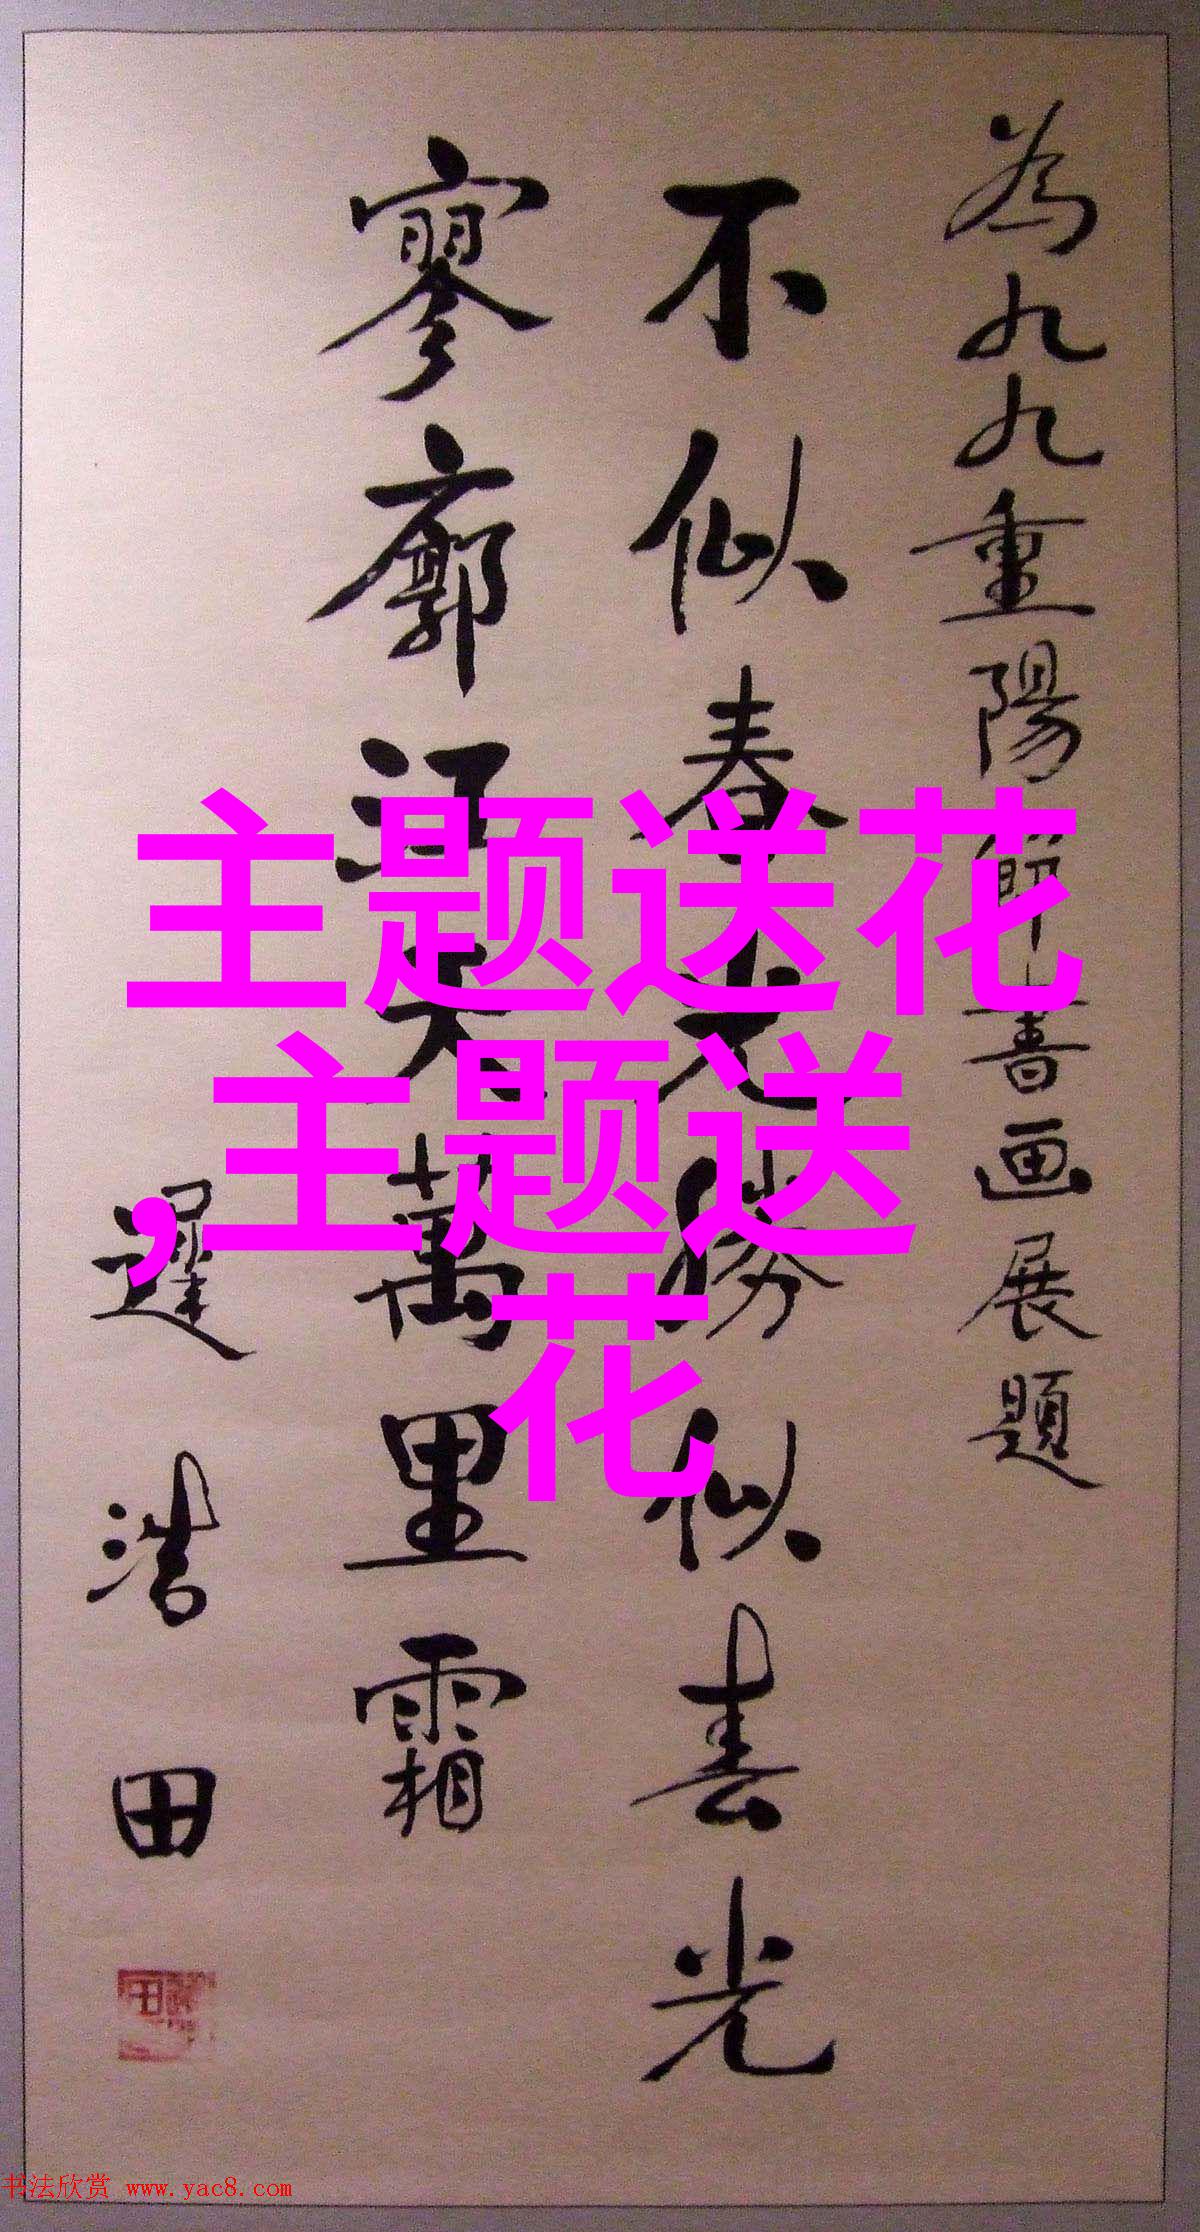 為九九重陽節書画展題
不似春光勝似春光
寥廓江天萬里霜
遲浩田
主题送花
,主题送
花
书法欣赏 www.yac8.com